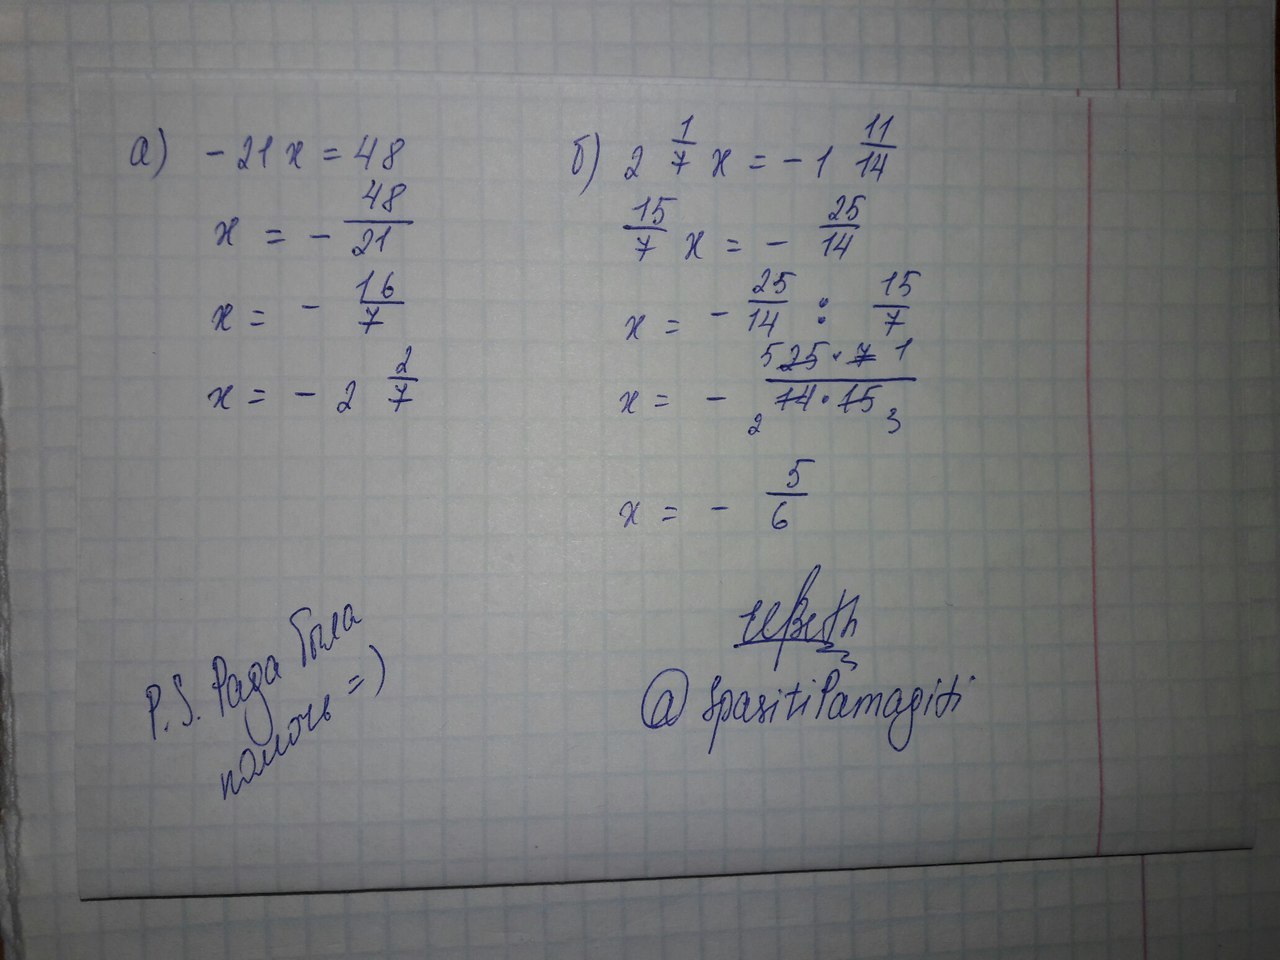 а) - 21 x = 48
x = - 48/21
x = - 16/7
x = - 2 2/7
б) 2 1/7 x = - 1 11/14
15/7 x = - 25/14
x = - 25/14 : 15/7
x = - 5 25 · 7 1 / 2 14 · 15 3
x = - 5/6
P.S. Рада была
помочь =)
@SpasitiPamagiti